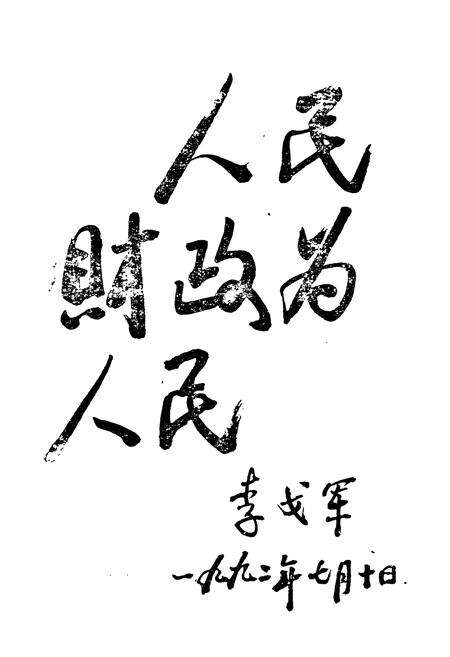 人民
財政为
人民
李戈军
一九九二年七月十日.